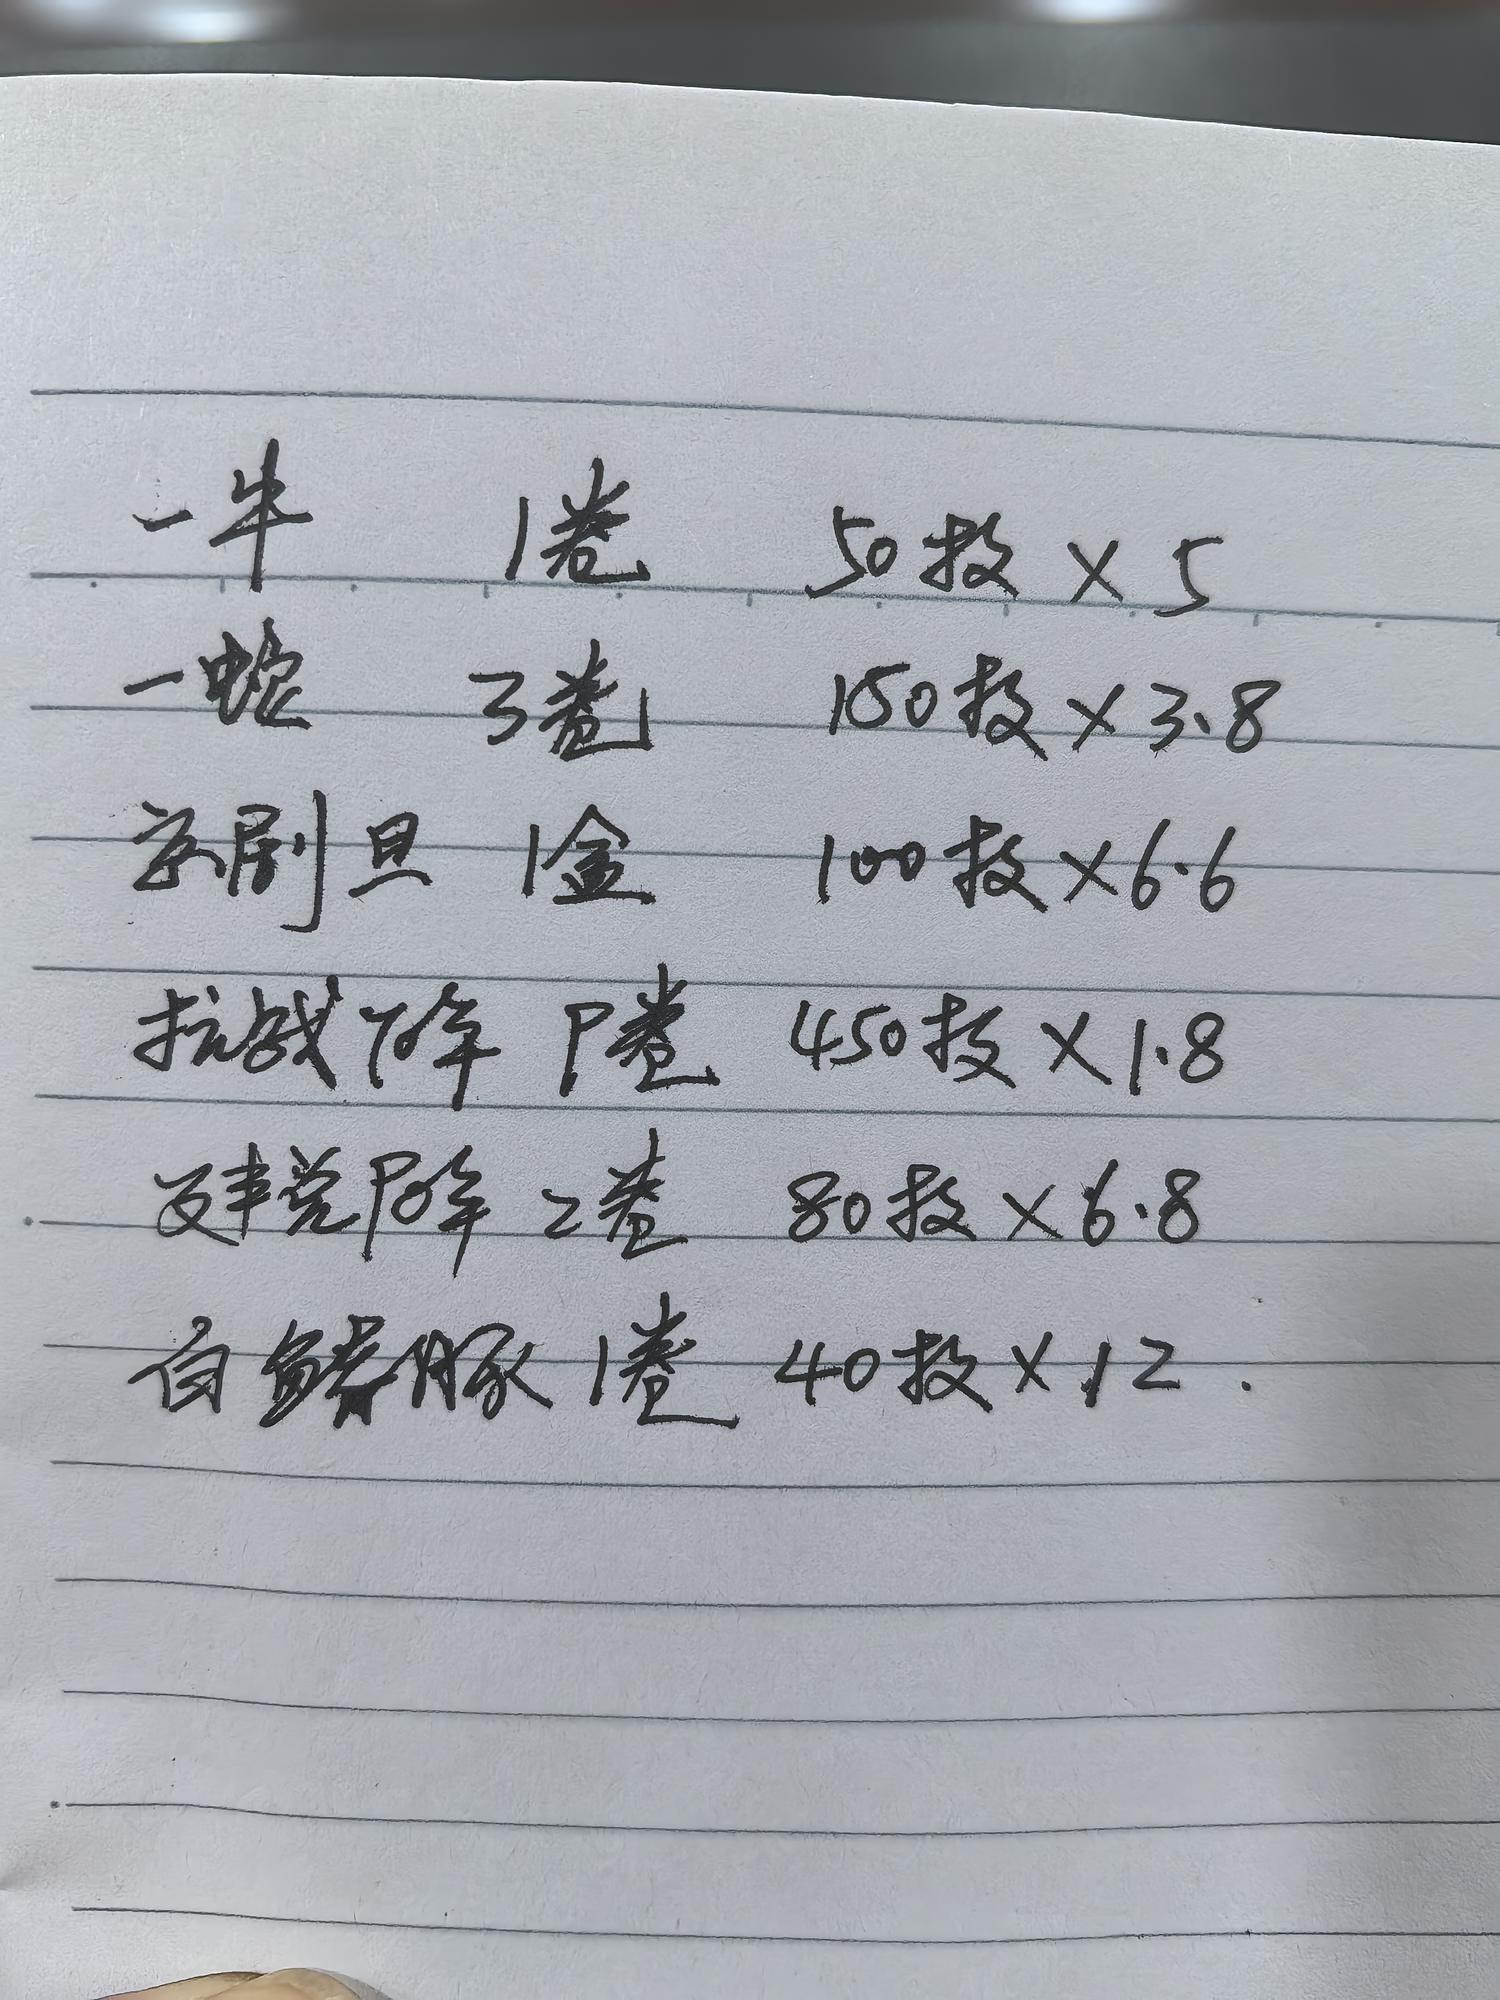 一牛 1卷 50枚×5
一蛇 3卷 150枚×3.8
京剧旦 1盒 100枚×6.6
抗战降 9卷 450枚×1.8
建党降 2卷 80枚×6.8
白鳍豚 1卷 40枚×12.